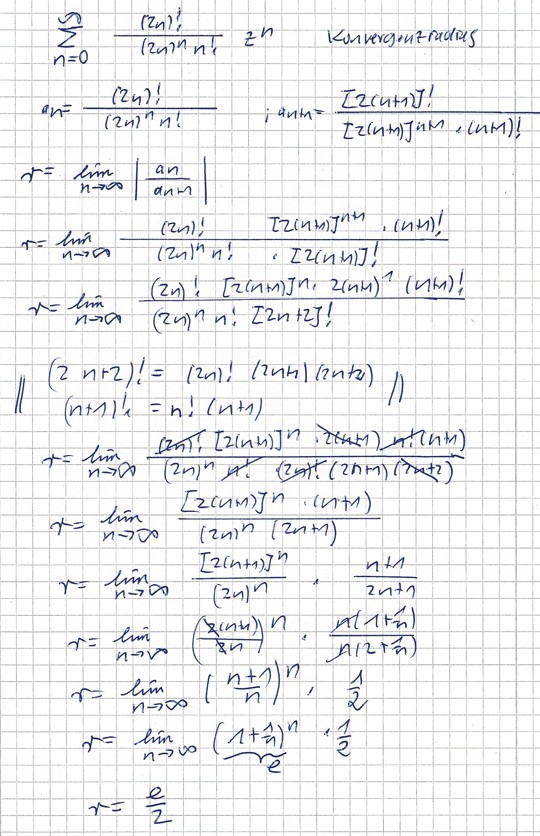 ∑_{n=0}^{∞} (2n)! / ((2n)^n n!) z^n   Konvergenzradius
a_n = (2n)! / ((2n)^n n!)   ; a_{n+1} = [2(n+1)]! / ([2(n+1)]^{n+1} · (n+1)!)
r = lim_{n→∞} | a_n / a_{n+1} |
r = lim_{n→∞} (2n)! [2(n+1)]^{n+1} · (n+1)! / ((2n)^n n! · [2(n+1)]!)
r = lim_{n→∞} (2n)! [2(n+1)]^n · 2(n+1)^1 (n+1)! / ((2n)^n n! [2n+2]!)
|| (2n+2)! = (2n)! (2n+1) (2n+2) ||
(n+1)! = n! (n+1)
r = lim_{n→∞} (2n)! [2(n+1)]^n · 2(n+1) n! (n+1) / ((2n)^n n! (2n)! (2n+1) (2n+2))
r = lim_{n→∞} [2(n+1)]^n · (n+1) / ((2n)^n (2n+1))
r = lim_{n→∞} [2(n+1)]^n / (2n)^n · (n+1) / (2n+1)
r = lim_{n→∞} (2(n+1) / 2n)^n · n(1+1/n) / n(2+1/n)
r = lim_{n→∞} ((n+1) / n)^n · 1/2
r = lim_{n→∞} (1+1/n)^n · 1/2
e
r = e/2